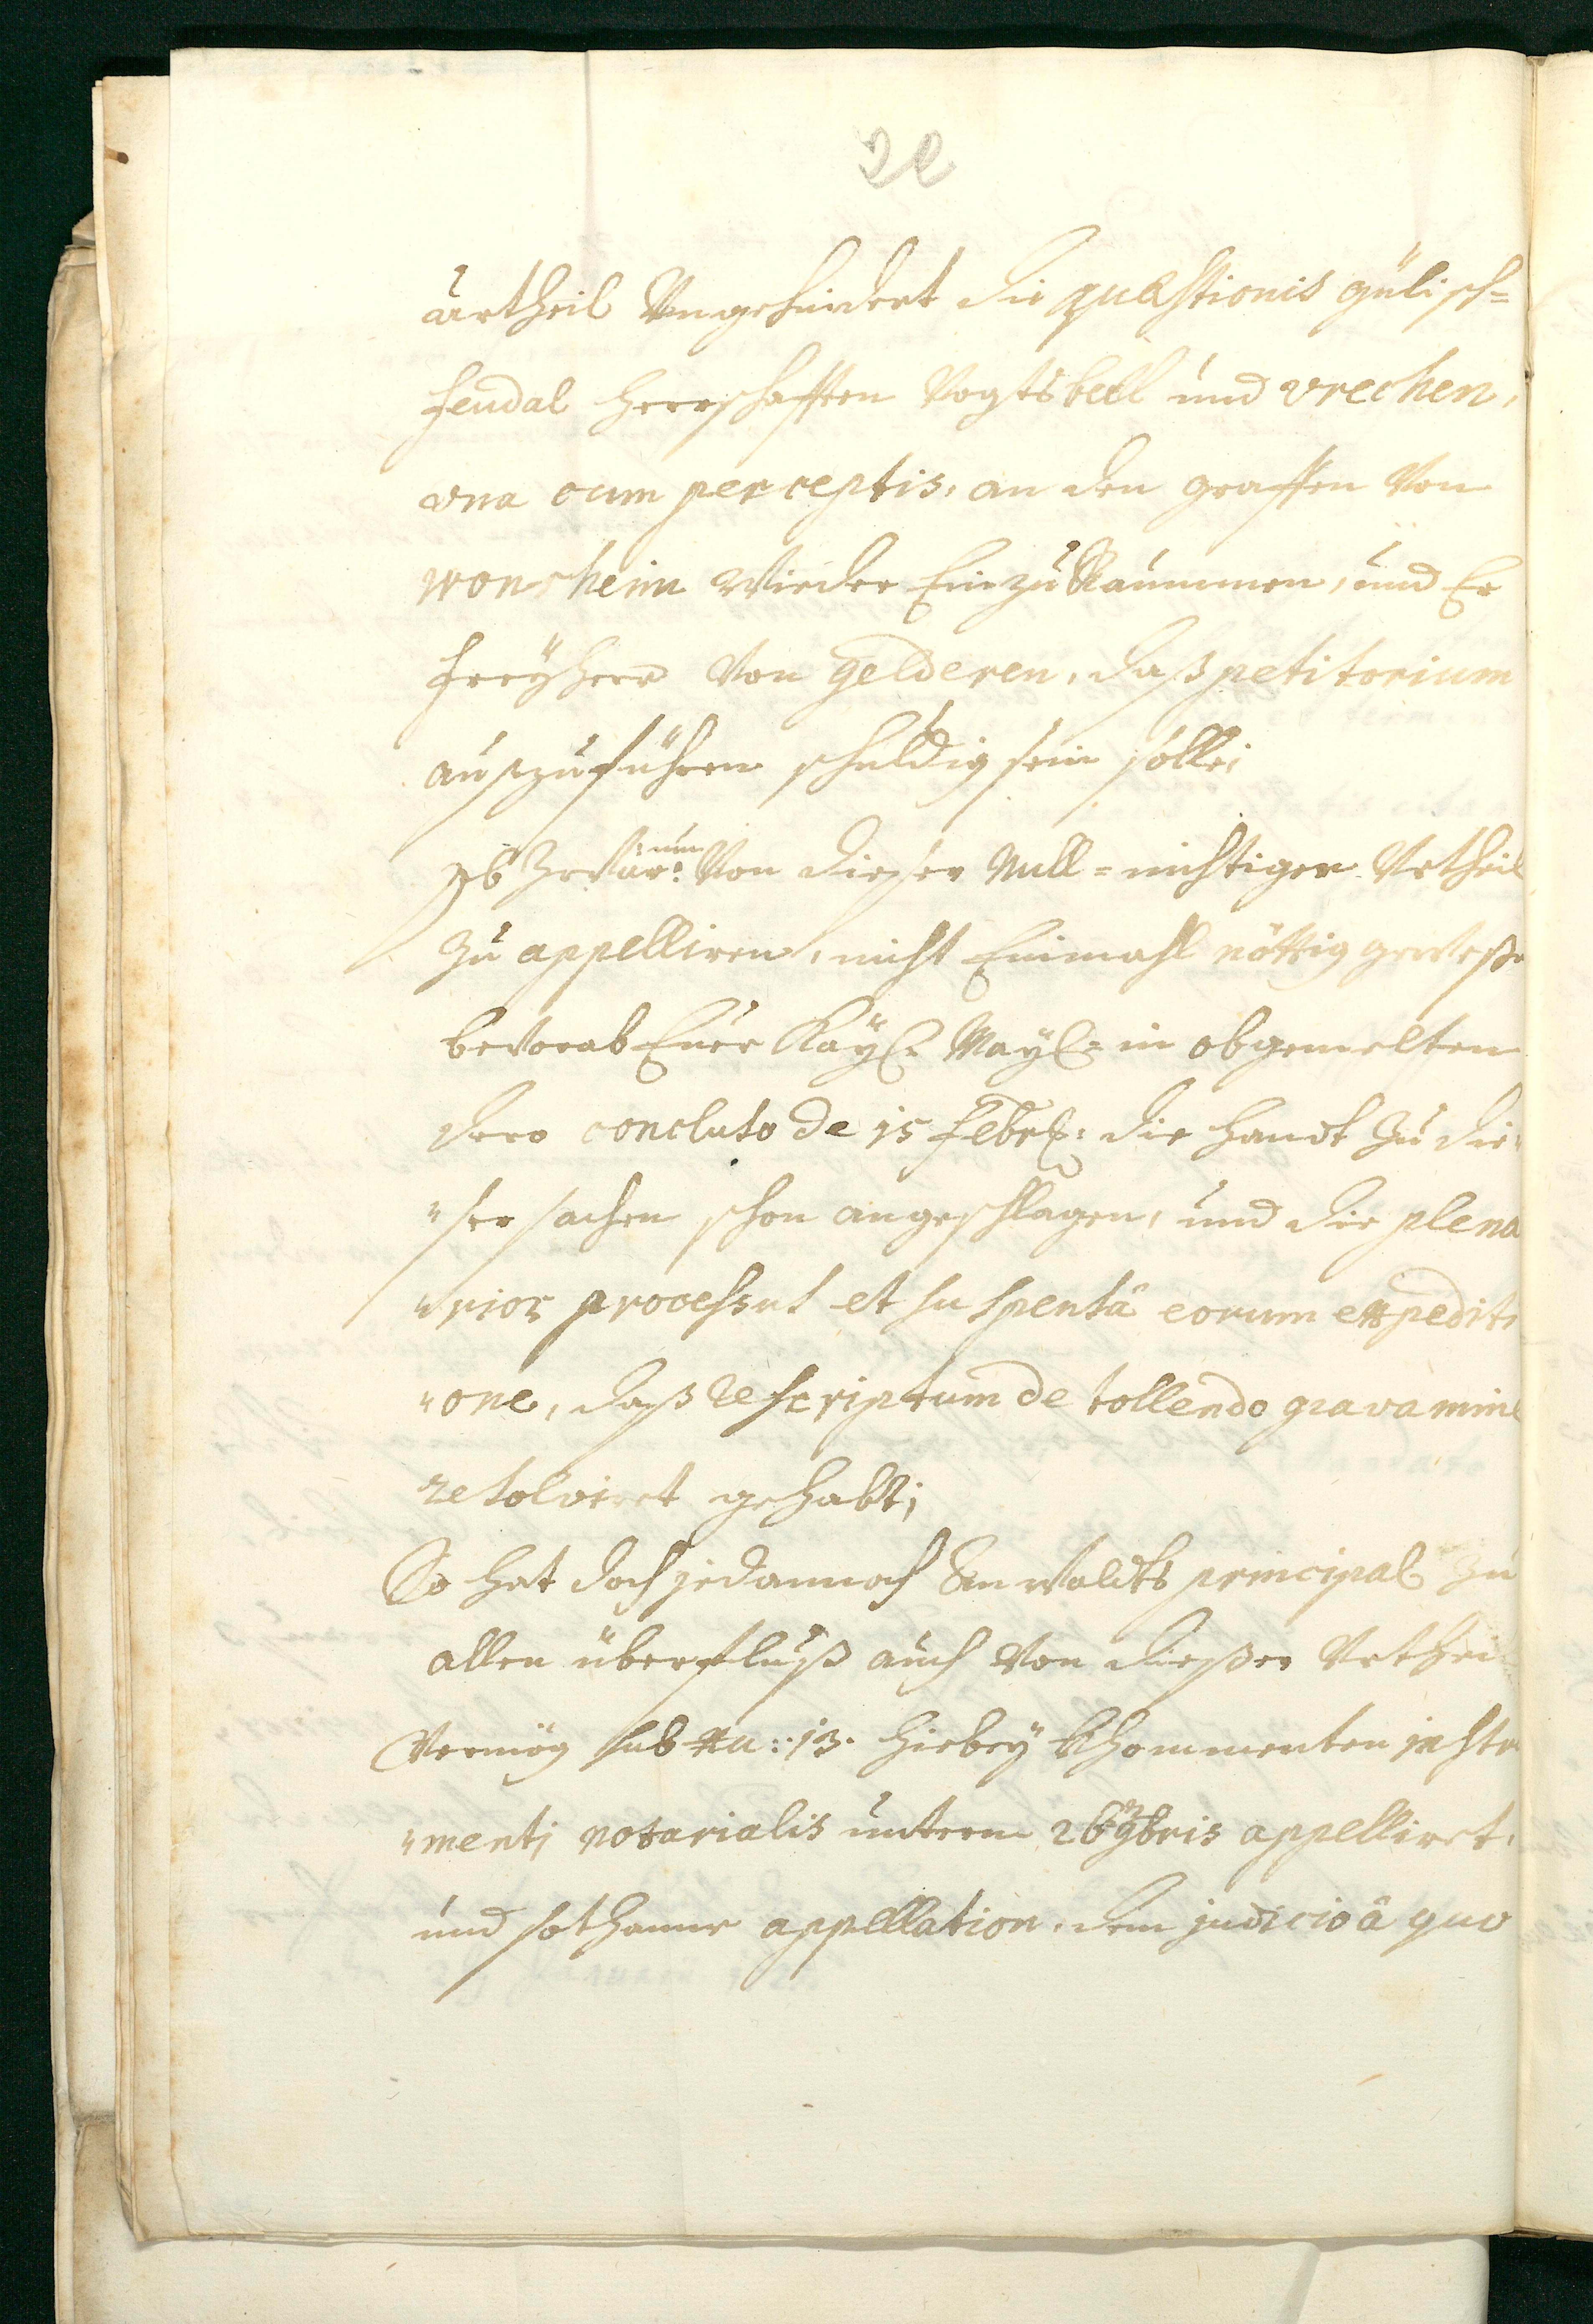 urtheil Ungehindert die quæstionis gülisch=
feudal herrschafften Vogtsbell und vrechen,
vna cum perceptis, an den graffen Von
wonsheim wieder Einzuraummen, und Er
freÿherr Von gelderen, daß petitorium
außzuführen schuldig sein solle;
Ob Zwar: nun Von dießer Null=nichtiger Urtheil
Zu appelliren, nicht Einmahl nöttig geweße
bevorab Euer Kaÿl: Maÿl: in obgemelten
dero concluso de 15 febrl: die handt zu die„
„ser sachen schon angeschlagen, und die plena
„rios processus et suspensâ eorum expediti
„one, daß rescriptum de tollendo gravamine
resolviret gehabt;
So hat doch jedannoch Anwaldts principal zu
allen überfluß auch Von dießer Urtheil
Vermög sub Nu: 13. hiebeÿ khommenten instru
„menti notarialis unterm 26 9bris appelliret,
und sothaner appellation, dem judicio â quo